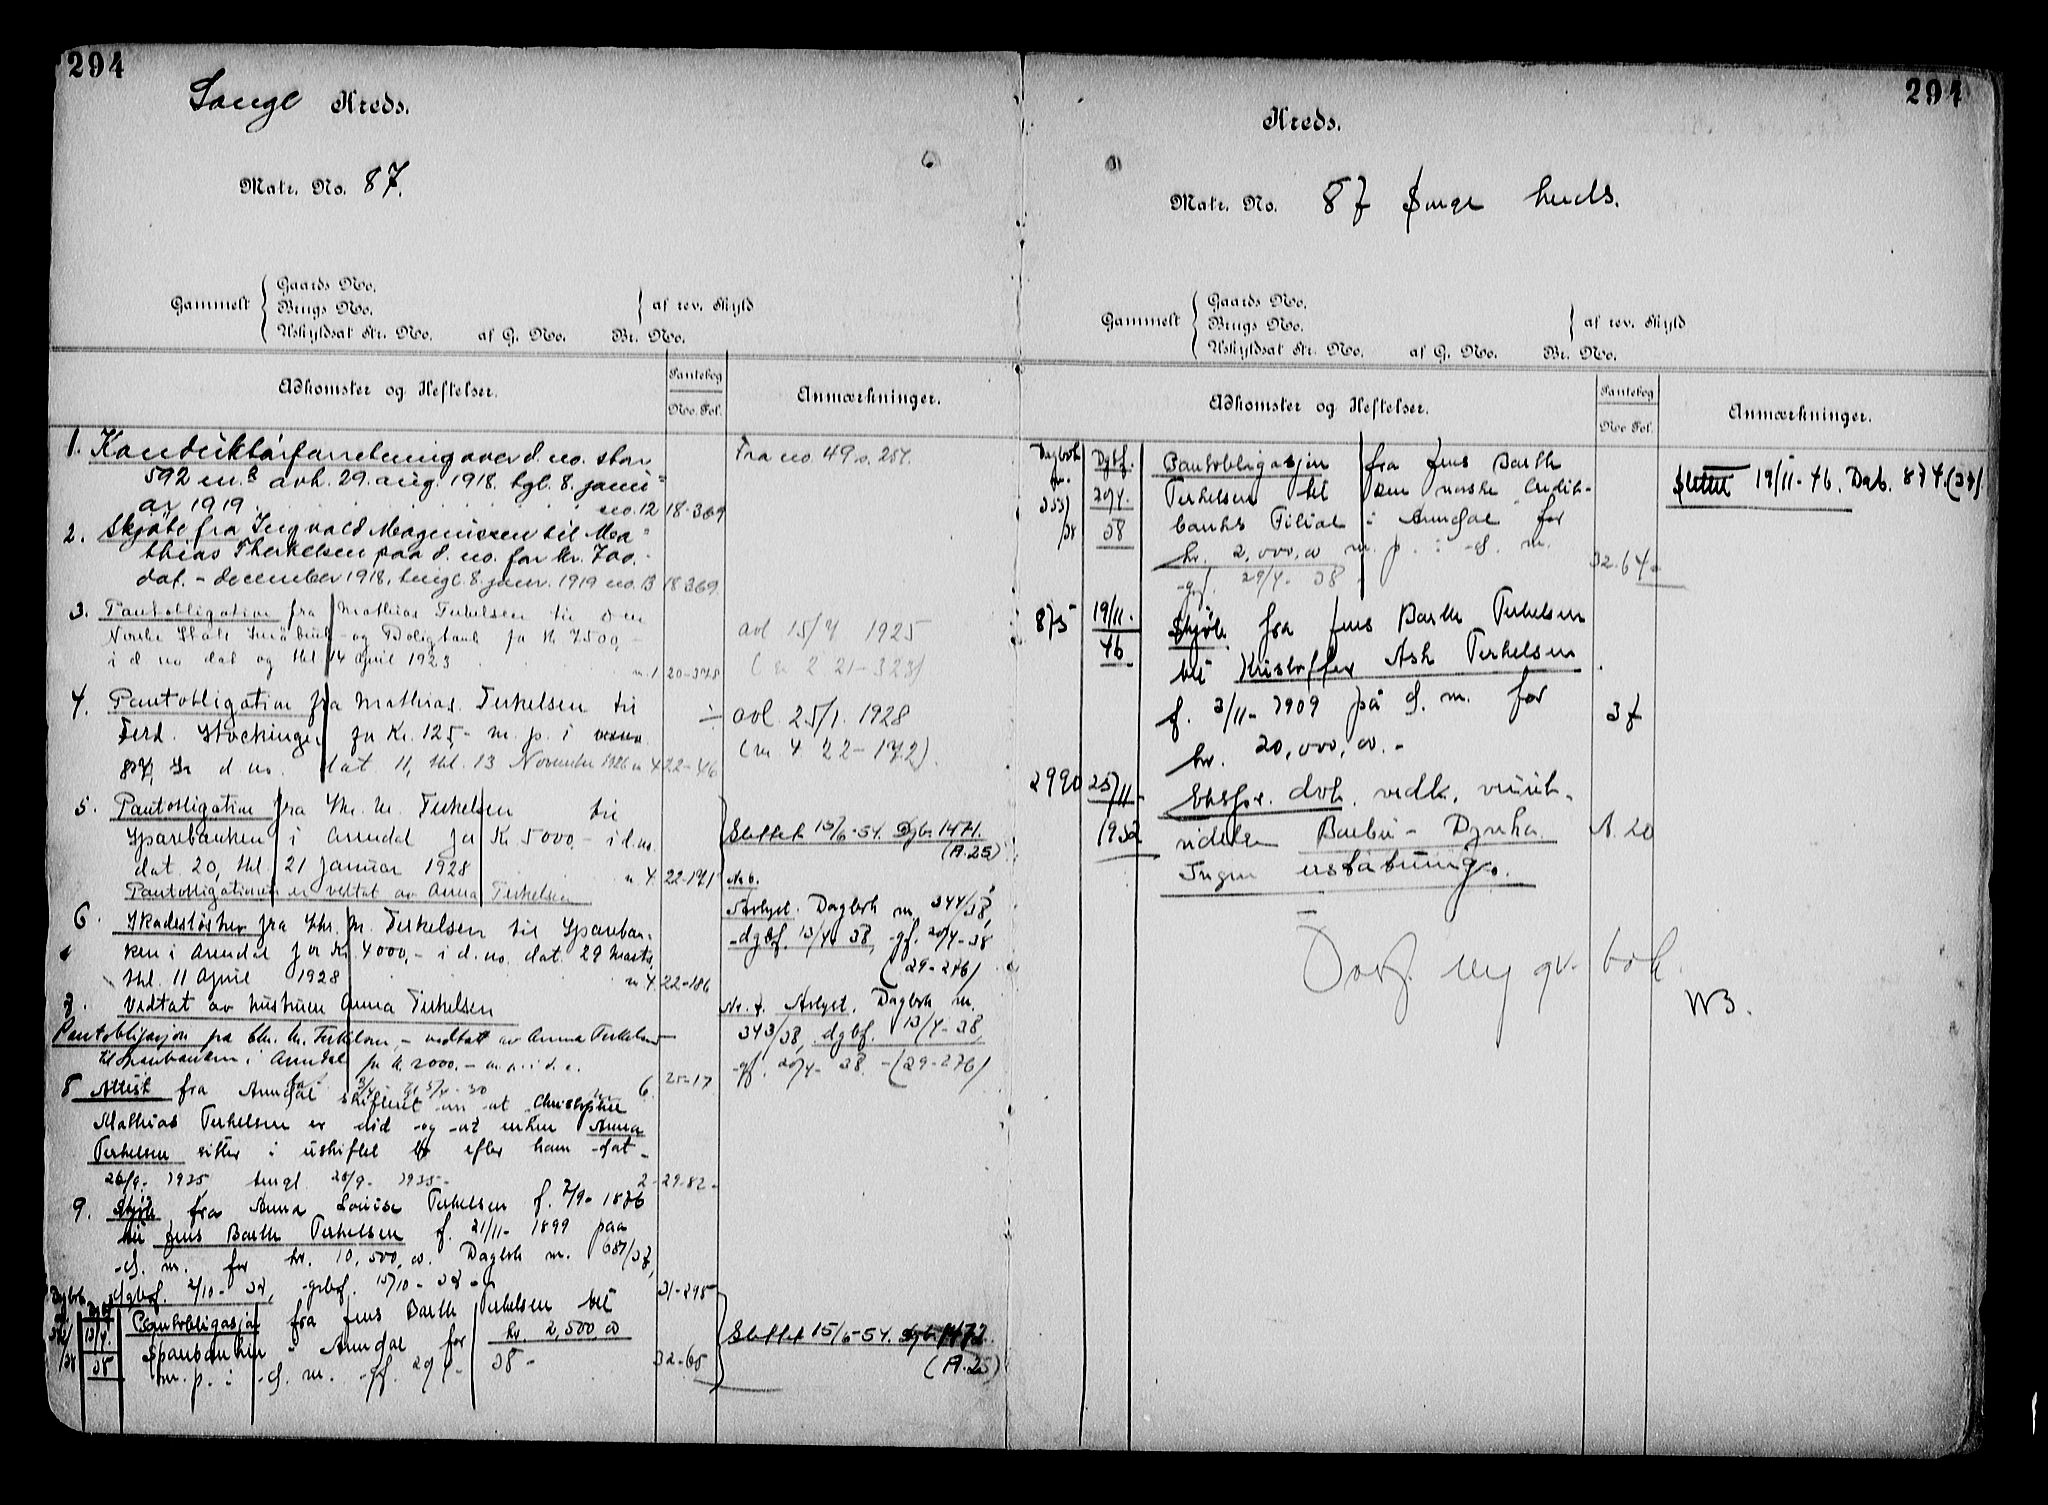 294
Songe Kreds.
Matr. No. 87.
Gammelt
Gaards No.
Brugs No.
Uskyldsat Str. No. af G. No. Br. No.
af rev. Skyld
Adkomster og Heftelser.
Pantebog
No. Fol.
Anmærkninger.
1. Konduktørforretning over d. no. stor
592 m.² avh. 29. aug. 1918. tgl. 8. janu-
ar 1919 no. 12 18-369
Fra no 49 s. 257.
2. Skjøte fra Ingvald Magnussen til Ma-
thias Therkelsen paa d. no. for kr. 700.-
dat. - december 1918, tingl. 8. janr. 1919 no. 13 18-369
3. Pantobligation fra Mathias Terkelsen til Den
Norske Stats Småbruk- og Boligbank for Kr 7500,-
i d no dat og thl 14 april 1923 n. 1 20-378
avl 15/4 1925
(n 2 21-323)
4. Pantobligation fra Mathias Terkelsen til
Ferd. Stockinger for Kr. 125,- m. p. i
d no. dat 11, thl. 13 November 1926 n 4 22-46
avl. 25/1. 1928
(n 4 22-172).
5. Pantobligation fra Chr. M. Terkelsen til
Sparebanken i Arendal for Kr 5000,- i d. no.
dat. 20, thl. 21 januar 1928 n 4 22-171
Pantobligationen er vedtat av Anna Terkelsen
Slettet 15/6-54. Dgb. 1471.
(A. 25)
6. Skadesløsbrev fra Chr. M. Terkelsen til Spareban-
ken i Arendal for Kr. 4000,- i d. no. dat. 29 Marts,
thl. 11 April 1928 n 4 22-186
Vedtat av hustruen Anna Terkelsen
No 6.
Avlyst. Dagbok nr. 344/38,
dgbf. 13/4 38, gf. 20/4-38
(29-276)
7.
Pantobligasjon fra Chr. M. Terkelsen, - vedtatt av Anna Terkelsen
til Sparebanken i Arendal for kr. 2000.- m. p. i d. n.
6 25-17
No. 7. Avlyst. Dagbok nr.
343/38, dgbf. 13/4-38,
gf. 20/4- 38. - (29-276)
8 Attest fra Arendal skifterett om at Christopher
Mathias Terkelsen er död og at enken Anna
Terkelsen sitter i uskiftet bo efter ham dat-
26/9- 1935 tingl 28/9- 1935- 2 29-82-
9. Skjöte fra Anna Louise Terkelsen f. 7/9- 1876
til Jens Barth Terkelsen f. 21/11- 1899 paa
d. m. for kr. 10,500,00. Dagbok nr. 687/37,
31-295
Dagbok
13/4.
38
Pantobligasjon fra Jens Barth Terkelsen til
Sparebanken i Arendal for kr. 2,500 00
m. p. i d. m. gf. 29 4- 38- 32-65
Slettet 15/6-54. Dgb. 1472.
(A. 25)
294
Kreds.
Matr. No. 87 Songe kreds.
Gammelt
Gaards No.
Brugs No.
Uskyldsat Str. No. af G. No. Br. No.
af rev. Skyld
Adkomster og Heftelser.
Pantebog
No. Fol.
Anmærkninger.
Dagbok nr. 353/38
Dgbf. 20/4. 38
Pantobligasjon fra Jens Barth
Terkelsen til Den norske Credit-
banks Filial i Arendal for
kr. 2,000,00 m. p. i d. m.
gf. 29/4- 38 - 32-64-
Slettet 19/11-46. Dab. 874.(37)
875 19/11. 46
Skjöte fra Jens Barth Terkelsen
til Kristoffer Ask Terkelsen
f. 3/11- 1909 på d. m. for
kr. 20,000,00.- 37
2990 25/11- 1952
Ekspr. dok. vedk. vernet-
Barbu - Dynha. A. 20
Ingen erstatning.
Overf. ny gr. bok.
W3.